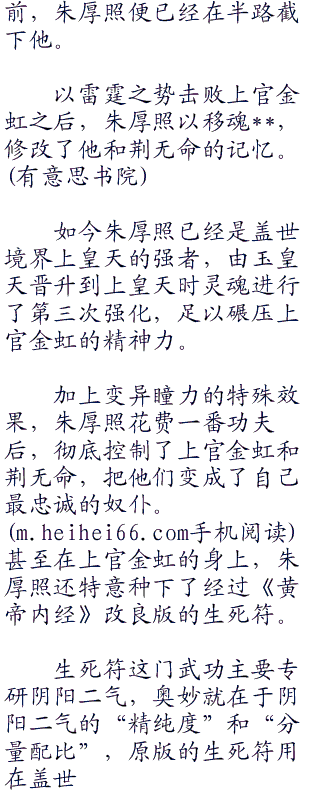 前，朱厚照便已经在半路截
下他。
以雷霆之势击败上官金
虹之后，朱厚照以移魂**，
修改了他和荆无命的记忆。
(有意思书院)
如今朱厚照已经是盖世
境界上皇天的强者，由玉皇
天晋升到上皇天时灵魂进行
了第三次强化，足以碾压上
官金虹的精神力。
加上变异瞳力的特殊效
果，朱厚照花费一番功夫
后，彻底控制了上官金虹和
荆无命，把他们变成了自己
最忠诚的奴仆。
(m.heihei66.com手机阅读)
甚至在上官金虹的身上，朱
厚照还特意种下了经过《黄
帝内经》改良版的生死符。
生死符这门武功主要专
研阴阳二气，奥妙就在于阴
阳二气的“精纯度”和“分
量配比”，原版的生死符用
在盖世